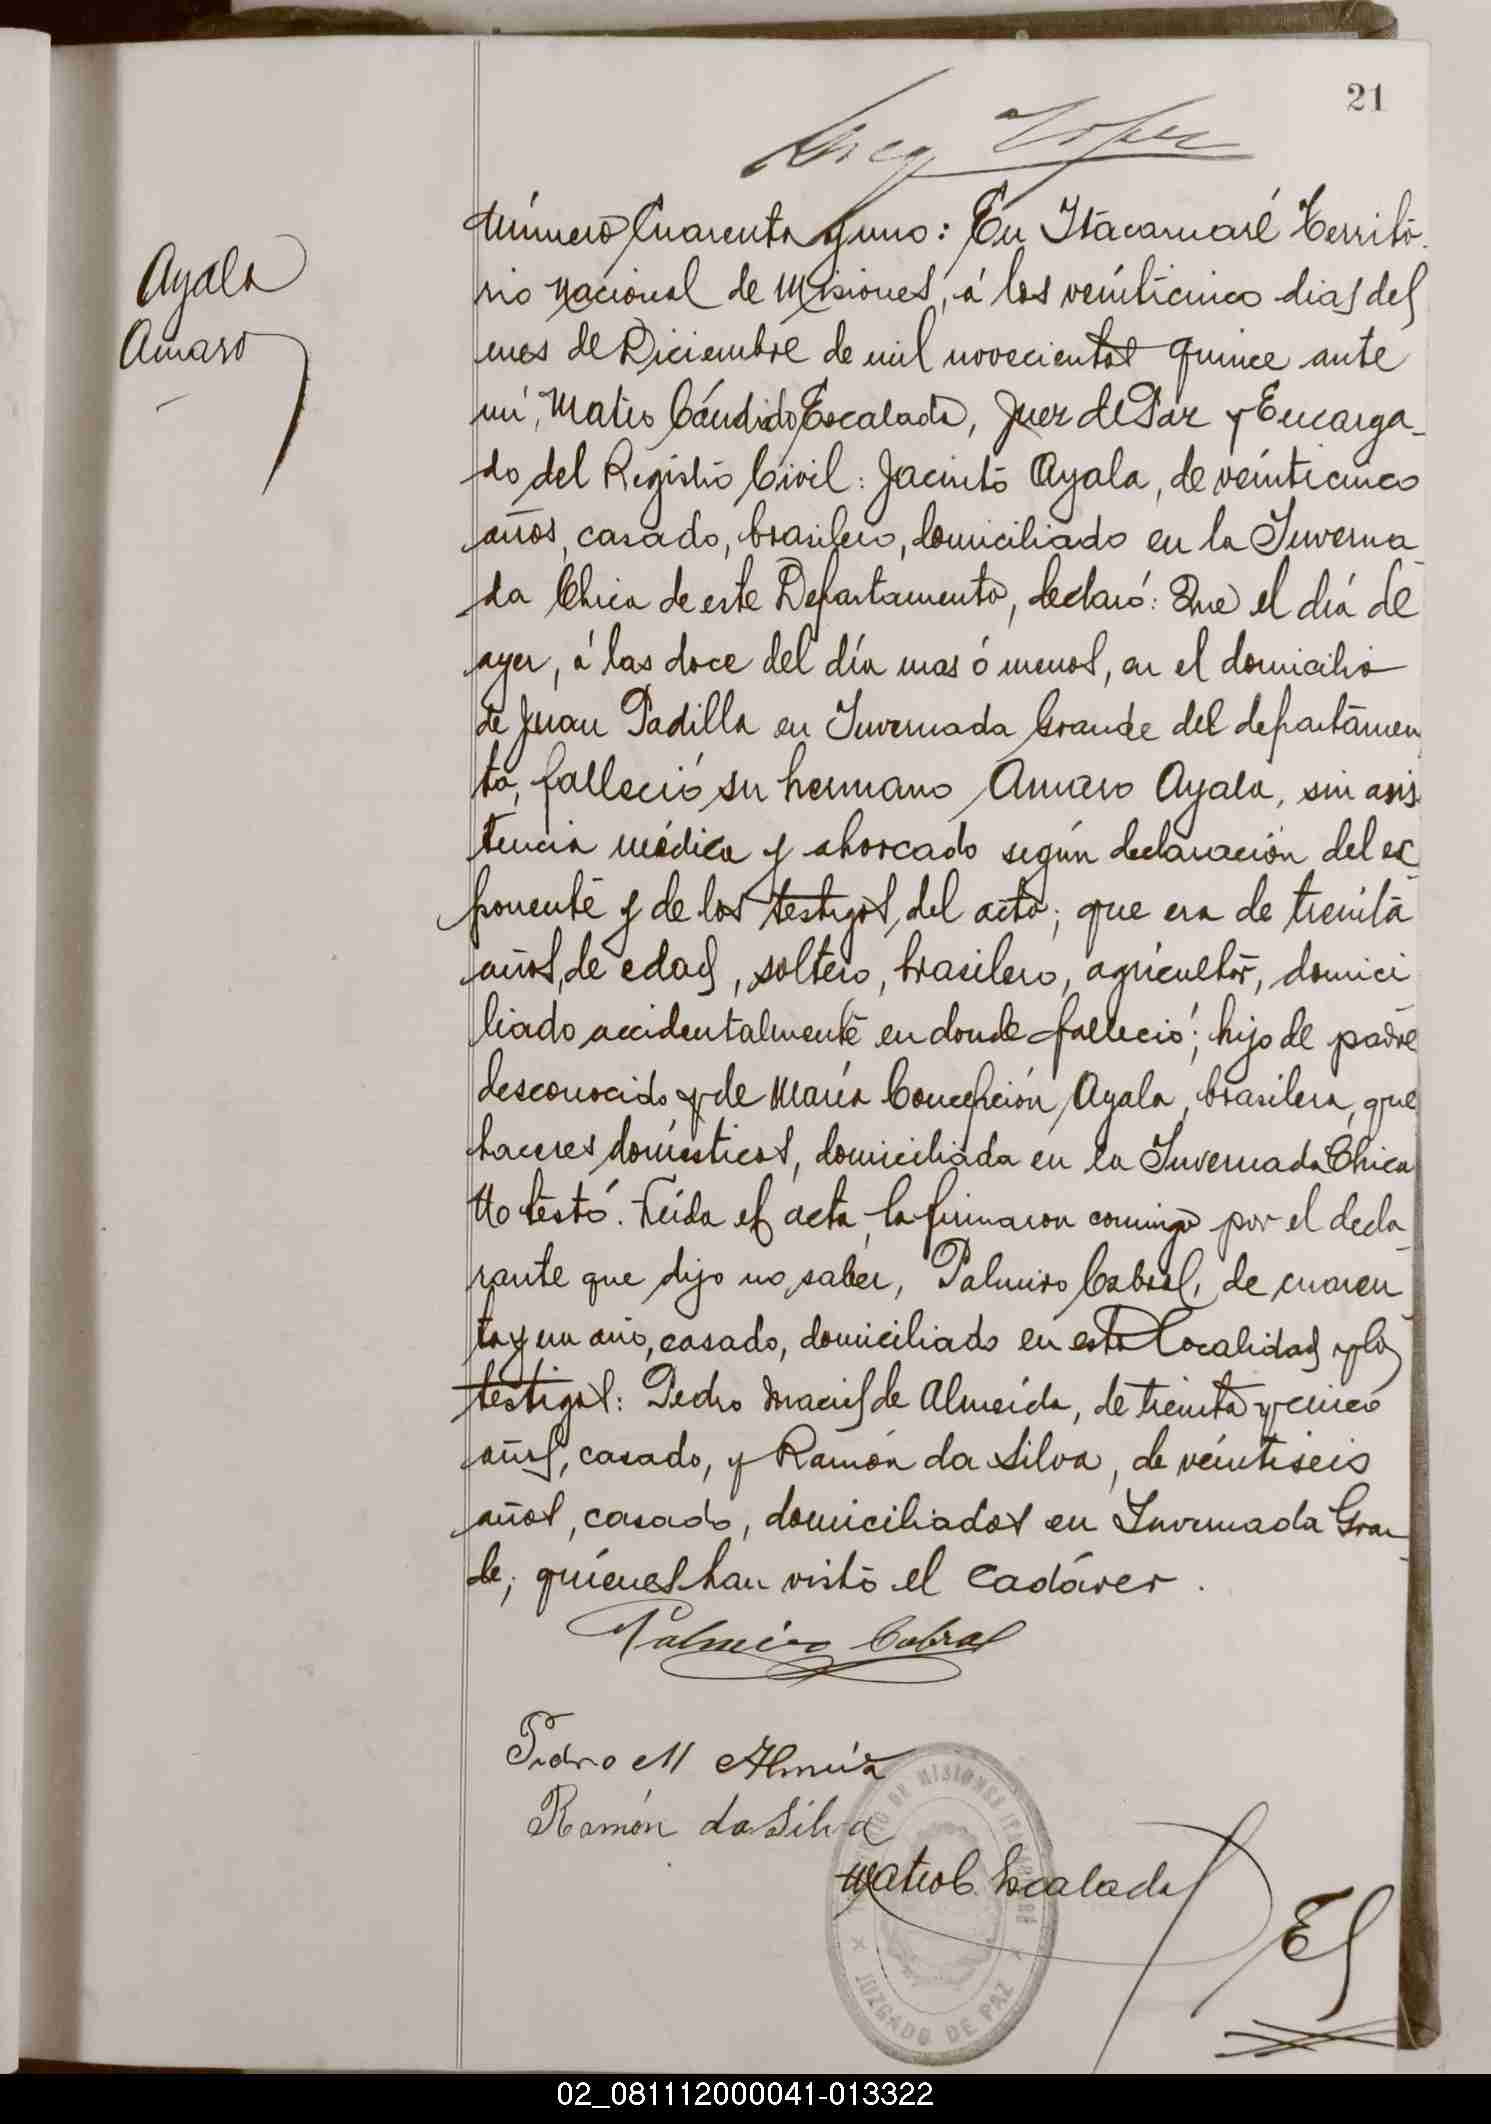 21
Lopez
Ayala
Amaro
Número Cuarenta y uno: En Itacaruaré Territo-
rio Nacional de Misiones, á los veinticinco dias del
mes de Diciembre de mil novecientos quince ante
mí, Mateo Cándido Escalada, Juez de Paz y Encarga-
do del Registro Civil: Jacinto Ayala, de veinticinco
años, casado, brasilero, domiciliado en la Inverna-
da Chica de este Departamento, declaró: Que el día de
ayer, á las doce del día mas ó menos, en el domicilio
de Juan Padilla en Invernada Grande del departamen
to, falleció su hermano Amaro Ayala, sin asis-
tencia médica y ahorcado según declaración del ex-
ponente y de los testigos del acto; que era de treinta
años de edad, soltero, brasilero, agricultor, domici
liado accidentalmente en donde falleció; hijo de padre
desconocido y de María Concepción Ayala, brasilera, que
haceres domésticos, domiciliada en la Invernada Chica
No testó. Leida el acta, la firmaron conmigo por el decla-
rante que dijo no saber, Palmiro Cabral, de cuaren-
ta y un año, casado, domiciliado en esta Localidad y los
testigos: Pedro Maciel de Almeida, de treinta y cinco
años, casado, y Ramón da Silva, de veintiseis
años, casado, domiciliados en Invernada Gran-
de; quiénes han visto el cadáver.
Palmiro Cabral
Pedro M Almeida
Ramón da Silva
Mateo C. Escalada
JUZGADO DE PAZ
02_081112000041-013322